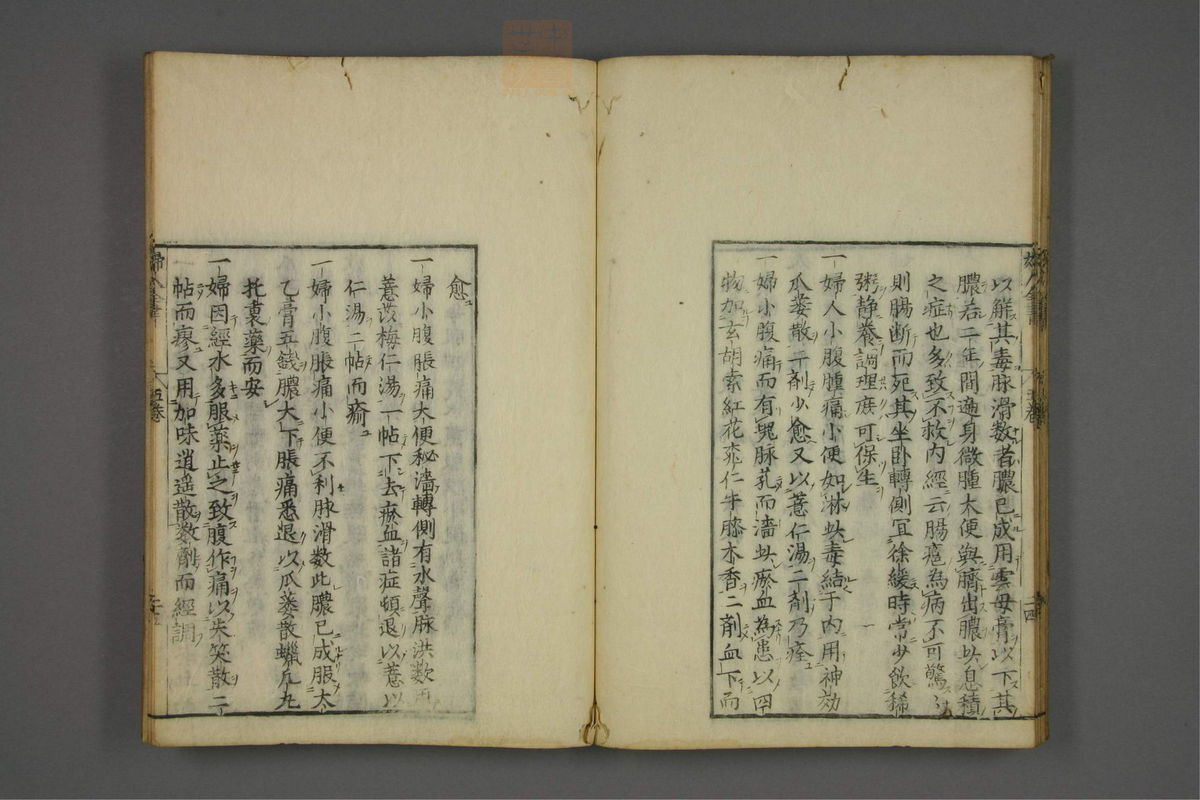 以解其毒脉滑数者膿已成用雲母膏以下其
膿若二年間遍身微腫大便與臍出膿此息積
之症也多致不救内經云腸癰為病不可驚
則腸断而死其坐卧轉側宜徐緩時常少飲稀
粥静養調理庶可保生
一婦人小腹腫痛小便如淋此毒結于内用神効
瓜蔞散二剤少愈又以薏仁湯二剤乃痊
一婦小腹痛而有塊脉芤而濇此瘀血為患以四
物加玄胡索紅花桃仁牛膝木香二剤血下而
愈
一婦小腹脹痛大便秘濇轉側有水聲脉洪数用
薏苡梅仁湯一帖下去瘀血諸症頓退以薏苡
仁湯二帖而瘉
一婦小腹脹痛小便不利脉滑数此膿已成服太
乙膏五錢膿大下脹痛悉退以瓜蔞散蠟凢丸
托裏藥而安
一婦因經水多服薬止之致腹作痛以失笑散二
帖而瘳又用加味逍遥散数劑而經調